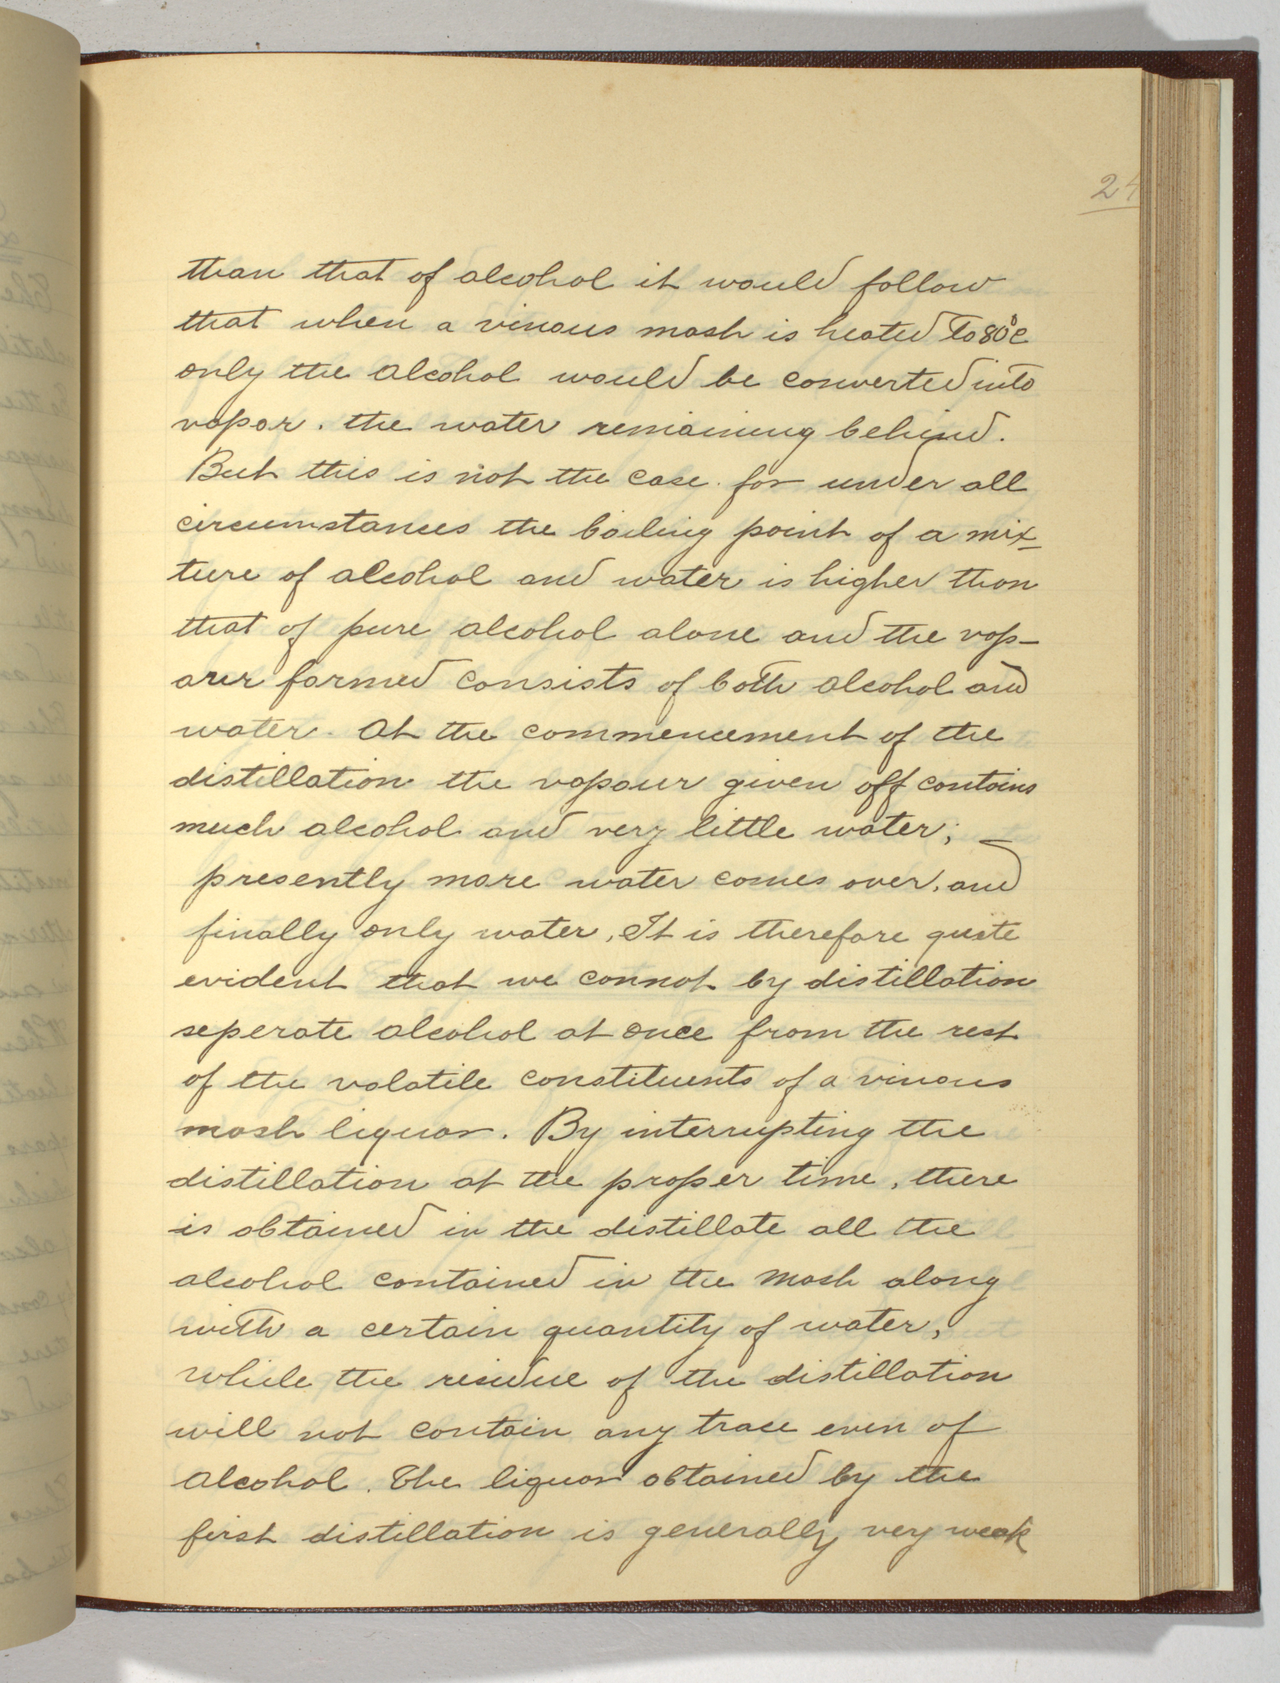 24
than that of alcohol it would follow
that when a vinous mash is heated to 80°C
only the alcohol would be converted into
vapor. the water remaining behind.
But this is not the case. for under all
circumstances the boiling point of a mix-
ture of alcohol and water is higher than
that of pure alcohol alone and the vap-
our formed consists of both alcohol and
water. At the commencement of the
distillation the vapour given off contains
much alcohol and very little water;
presently more water comes over, and
finally only water, It is therefore quite
evident that we cannot by distillation
seperate alcohol at once from the rest
of the volatile constituents of a vinous
mash liquor. By interrupting the
distillation at the proper time, there
is obtained in the distillate all the
alcohol contained in the mash along
with a certain quantity of water,
while the residue of the distillation
will not contain any trace even of
alcohol. The liquor obtained by the
first distillation is generally very weak